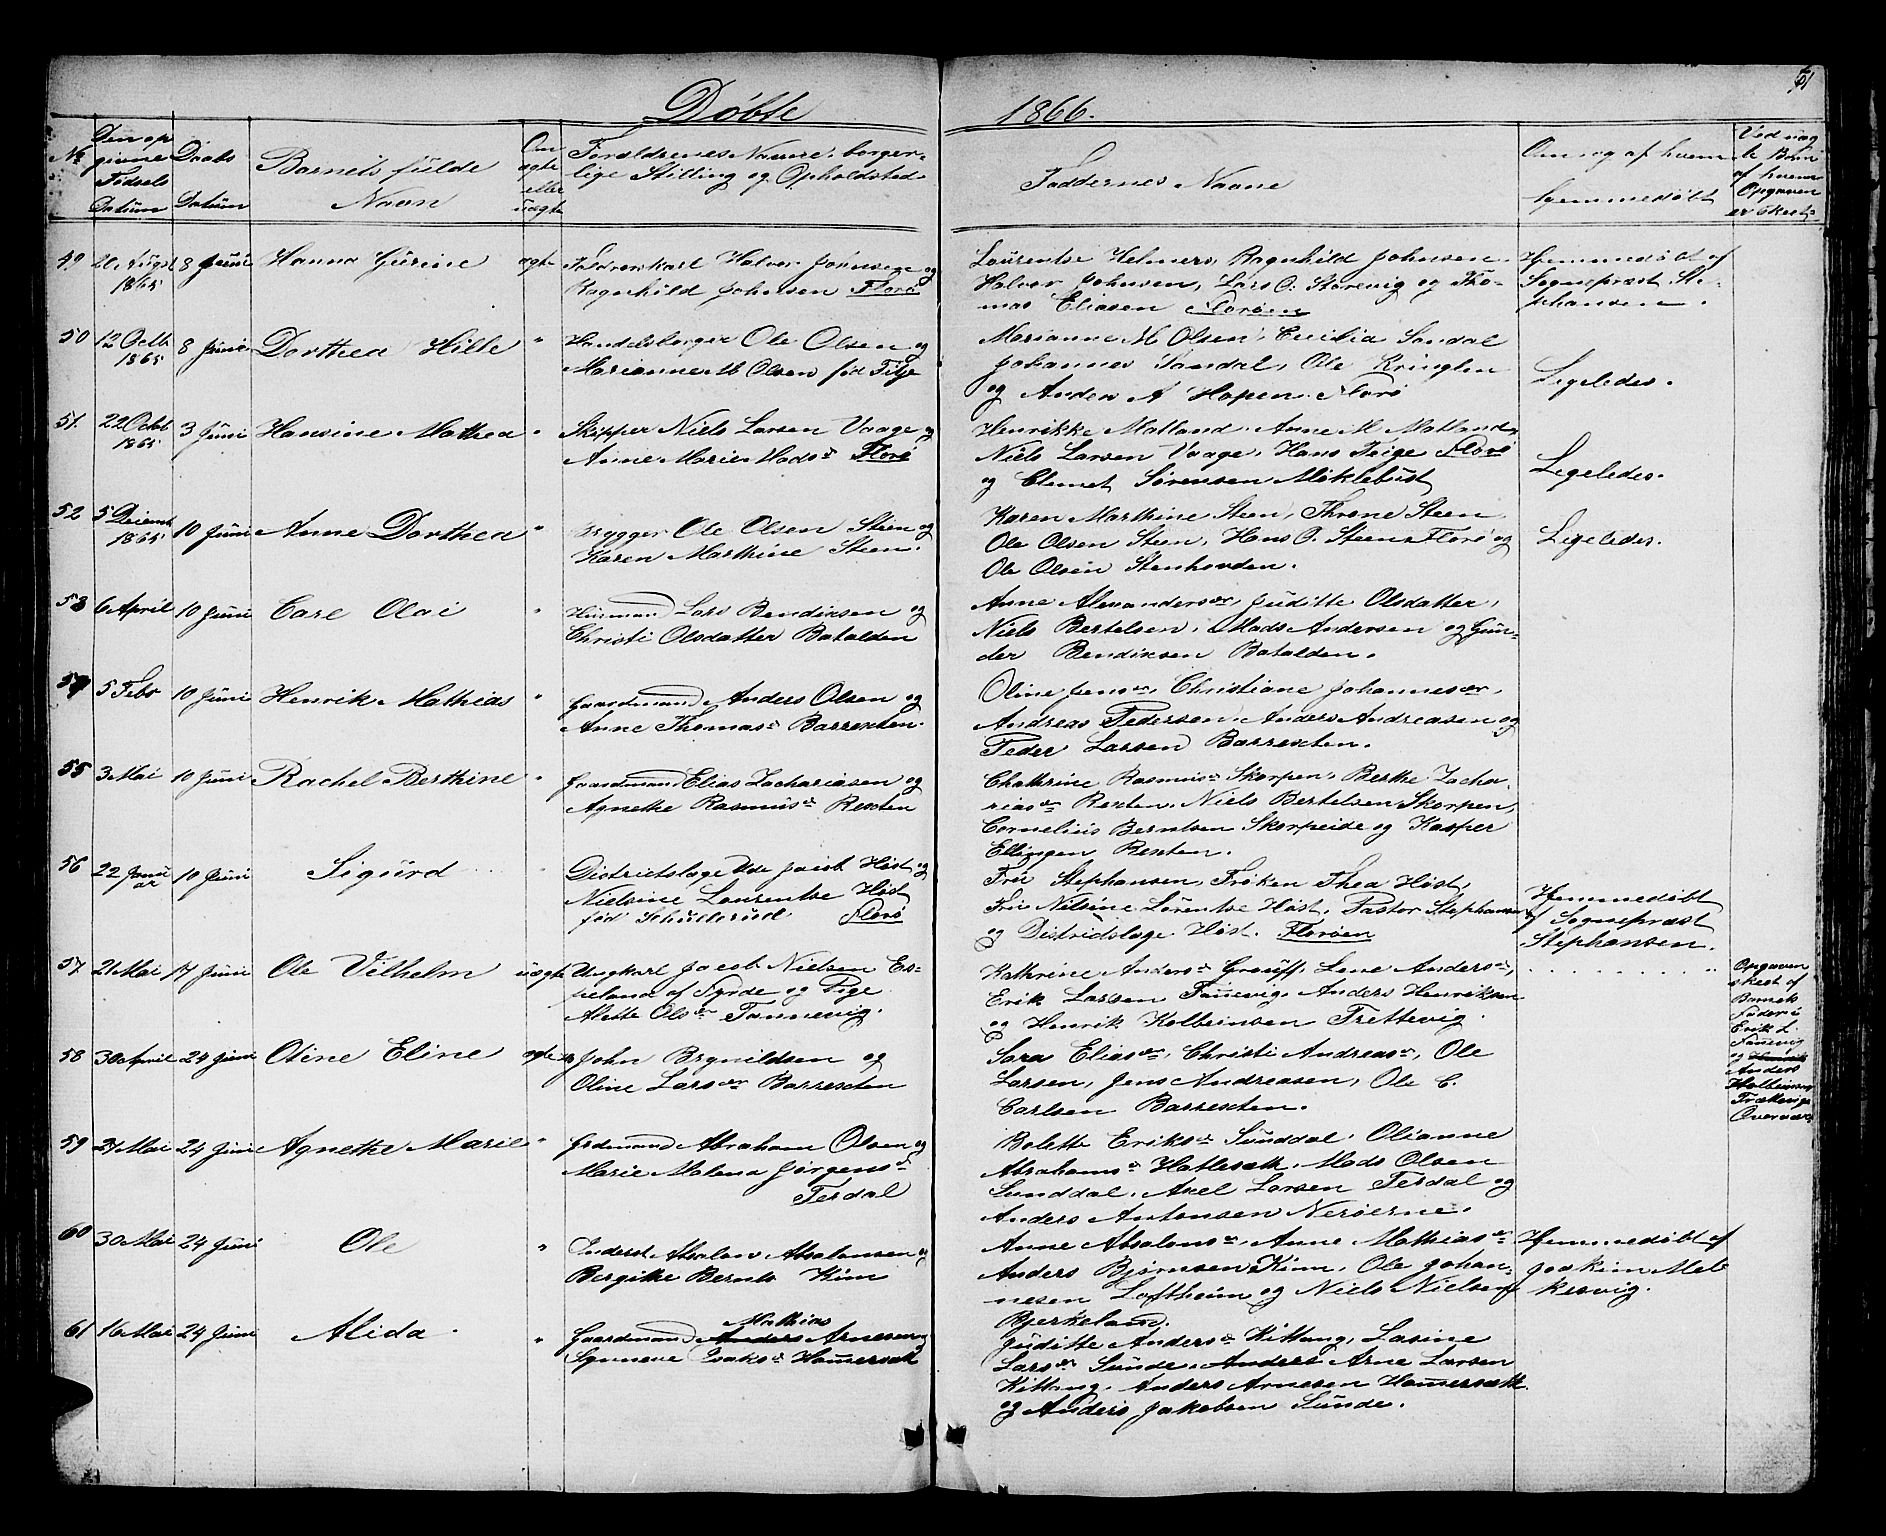 Døbte 1866.
61
No
Den op
givne
Fødsels
Datum
Daabs
Datum
Barnets fulde
Navn
Om
ægte
eller
uægte
Forældrenes Navne, borger-
lige Stilling og Opholdsted
Faddernes Navne
Om og af hvem
hjemmedøbt
Ved uæg
te Børn
af hvem
Opgaven
er skeet
49 1865 8 Juni Hanna Gurine ægte Halvor Johnsen og
Ragnhild Johnsen Florø
Laurentse Helmers, Ragnhild Johnsen
Halvor Johnsen, Lars O. Storevig og Tho-
mas Eliasen Florøen
Hjemmedøbt af
Sognepræst Ste-
phansen.
50 12 Octb 1865 8 Juni Dorthea Hille " Handelsborger Ole Olsen og
Marianne M Olsen fød Titje
Marianne M Olsen, Cecilia Sandal
Johannes Sandal, Ole Kringlen
og Anders A Hopen. Florø
Ligeledes.
51. 22 Octob 1865 3 Juni Hansine Mathea " Skipper Niels Larsen Vaage og
Anne Marie Madsdr Florø
Henrikke Matland, Anne M Matland,
Niels Larsen Vaage, Hans Teige Florø
og Clemet Sørensen Møklebust
Ligeledes.
52 5 Decemb 1865 10 Juni Anne Dorthea " Brygger Ole Olsen Steen og
Karen Marthine Steen.
Karen Marthine Steen, Throne Steen
Ole Olsen Steen, Hans O. Steen Florø og
Ole Olsen Stenhovden.
Ligeledes.
53 6 April 10 Juni Carl Olai " Huusmand Lars Bendiksen og
Christi Olsdatter Batalden
Anne Alexandersdr, Juditte Olsdatter,
Niels Bertelsen, Mads Andersen og Gun-
der Bendiksen Batalden.
54 5 Febr 10 Juni Henrik Mathias " Gaardmand Anders Olsen og
Anne Thomasdr Barrexten.
Oline Jensdr, Christiane Johannesdr,
Andreas Pedersen, Anders Andreasen og
Peder Larsen Barrexten.
55 3 Mai 10 Juni Rachel Berthine " Gaardmand Elias Zachariasen og
Agnethe Rasmusdr Rexten
Chathrine Rasmusdr Skorpen, Berthe Zacha-
riasdr Rexten, Niels Bertelsen Skorpen,
Cornelius Berntsen Skorpeide og Kasper
Ellingen Rexten.
56 22 Janu
ar 10 Juni Sigurd " Districtslæge Høst og
Nielsine Laurentse Høst
fød Florø
Fru Stephansen, Frøken Thea Høst,
Fru Nilsine Lorentse Høst, Pastor Stephansen
og Distridslæge Høst. Florøen
Hjemmedøbt
af Sognepræst
Stephansen.
57 21 Mai 17 Juni Ole Vilhelm uægte Ungkarl Jacob Nielsen Es-
peland af Fyrde og Pige
Alette Olsdr Fannevig.
Kathrine Andersdr Grauff, Lene Andersdr,
Erik Larsen Fannevig, Anders Henriksen
og Henrik Kolbeinsen Trettevig.
Opgaven
skeet af
Barnets
Faddere
Erik L.
Fannevig
og Henrik
Anders
Kolbeinsen
Trættevigs
Overvær
58 30 April 24 Juni Oline Eline ægte John Brynildsen og
Oline Larsdr Barrexten
Sara Eliasdr, Christi Andreasdr, Ole
Larsen, Jens Andreasen, Ole C.
Carlsen Barrexten.
59 21 Mai 24 Juni Agnethe Marie " Grdmand Abraham Olsen og
Marie Malena Jørgensdr
Terdal
Bolette Eriksdr Sunddal, Olianne
Abrahamsdr Hatlesæth, Mads Olsen
Sunddal, Axel Larsen Terdal og
Anders Antonsen Nerøerne.
60 30 Mai 24 Juni Ole " Inderst Absalon Absalonsen og
Bergitte Bernts Kinn
Anne Absalonsdr, Anne Mathiasdr
Anders Bjørnsen Kinn, Ole Johan-
nesen Loftheim og Niels Nielsen
Bjerkeland.
Hjemmedøbt af
Joakim Mel
kesvig.
61 16 Mai 24 Juni Alida. " Mathias
Gaardmand Anders Arnesen og
Synneve Isaksdr Hammersæth
Juditte Andersdr Kittang, Lasine
Larsdr Sunde, Anders Arne Larsen
Kittang, Anders Arnesen Hammersæth
og Anders Jakobsen Sunde.